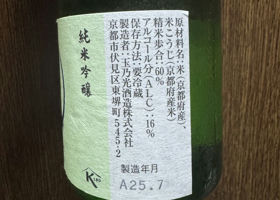 純米吟醸
原材料名:米(京都府産)、
米こうじ(京都府産米)
精米歩合:60%
アルコール分(ALC):16%
保存方法:要冷蔵
製造者:玉乃光酒造株式会社
京都市伏見区東堺町545-2
製造年月
A25.7